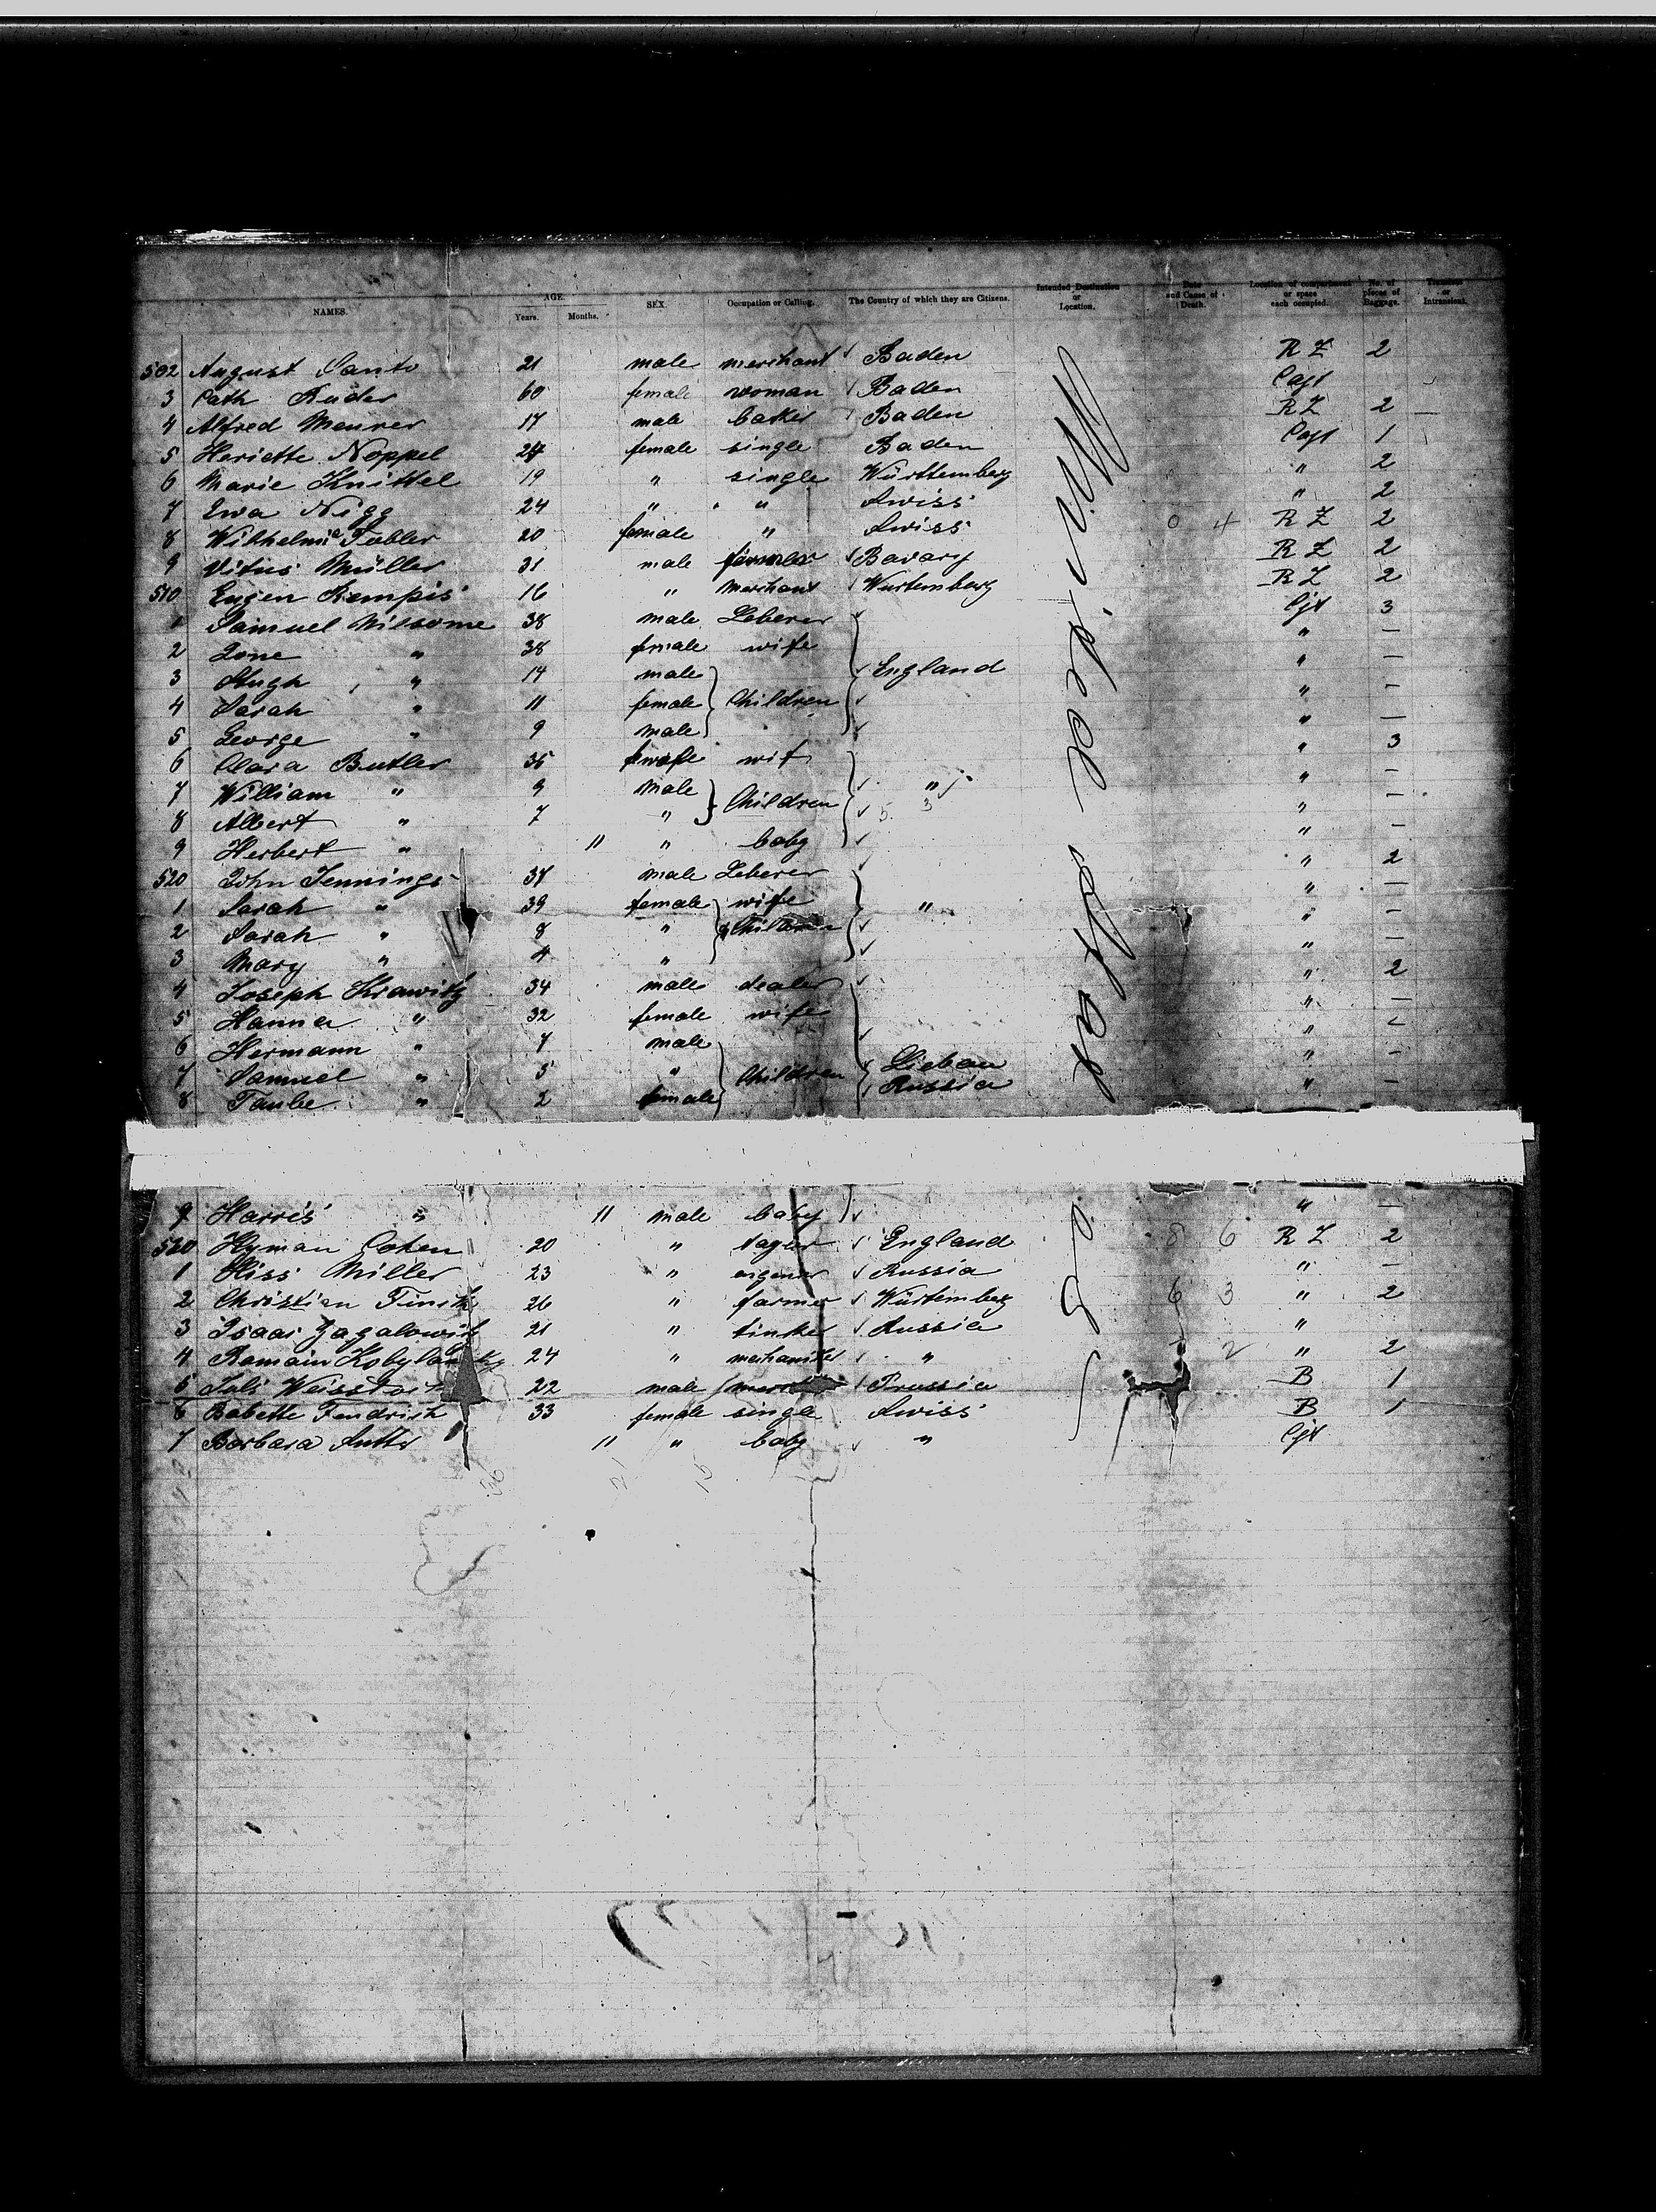 NAMES. AGE. Years. Months. SEX. Occupation or Calling. The Country of which they are Citizens. Intended Destination or Location. Date and Cause of Death. Location of compartment or space each occupied. No. of pieces of Baggage. Transient or Intransient.
502 August Santo 21 male merchant Baden R Z 2
3 Cath Ruder 60 female woman Baden Capt
4 Alfred Meurer 17 male baker Baden R Z 2 —
5 Heriette Noppel 24 female single Baden Capt 1
6 Marie Knittel 19 " single Württemberg " 2
7 Ewa Nigg 24 " " Swiss " 2
8 Wilhelmie Tobler 20 female " Swiss 0 4 R Z 2
9 Vitus Müller 31 male farmer Bavary R Z 2
510 Eugen Kempis 16 " Merchant Wurtemberg R Z 2
1 Samuel Milsome 38 male Leberer Cjt 3
2 Jone " 38 female wife " —
3 Hugh " 14 male England " —
4 Sarah " 11 female Children " —
5 George " 9 male " —
6 Clara Butler 35 female wif " 3
7 William " 9 male " " —
8 Albert " 7 " Children 5 3 " —
9 Herbert " 11 " baby " —
520 John Jennings 37 male Leberer " 2
1 Sarah " 39 female wife " " —
2 Sarah " 8 " Children " —
3 Mary " 4 " " —
4 Joseph Krawitz 34 male dealer " 2
5 Hanna " 32 female wife " —
6 Hermann " 7 male " —
7 Samuel " 5 " Children Liebau " —
8 Taube " 2 female Russia " —
9 Harris " 11 male baby " —
520 Hyman Cohen 20 " England 8 6 R Z 2
1 Hiss Miller 23 " Russia " —
2 Christian 26 " farmer Würtemberg 6 3 " 2
3 Isaac 21 " tinker Russia "
4 Romain 24 " " 2 " 2
5 22 male Prussia B 1
6 Babette Fendrich 33 female single Swiss B 1
7 Barbara Sutter 11 " baby " Cjt